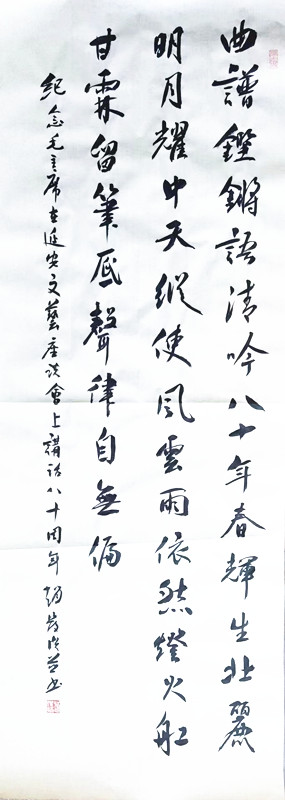 曲譜鏗鏘語清吟八十年春輝生壯麗
明月耀中天縱使風雲雨依然燈火船
甘霖留筆底聲律自無偏
紀念毛主席在延安文藝座談會上講話八十周年